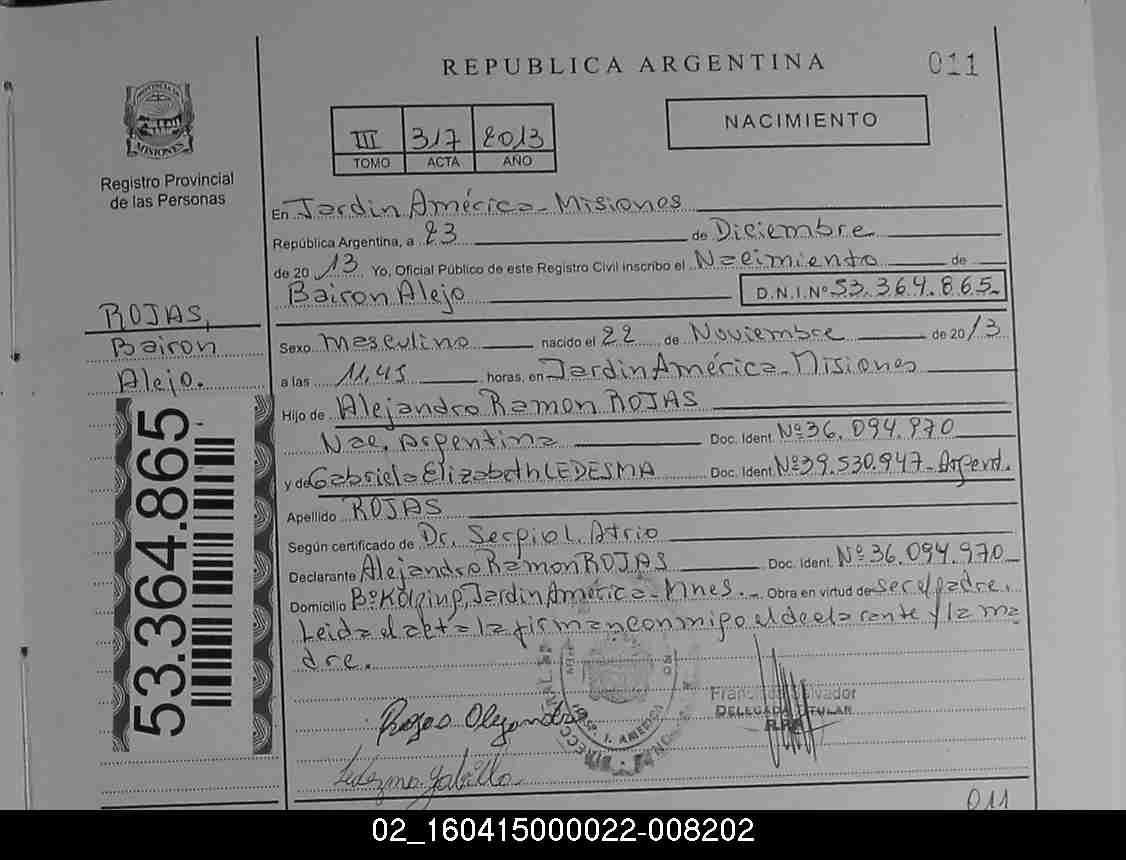 REPUBLICA ARGENTINA 011
PROVINCIA DE MISIONES
Registro Provincial
de las Personas
III 317 2013
TOMO ACTA AÑO
NACIMIENTO
En Jardin América - Misiones
República Argentina, a 23 de Diciembre
de 20 13 Yo, Oficial Público de este Registro Civil inscribo el Nacimiento de
Bairon Alejo D.N.I.Nº 53.364.865
ROJAS,
Bairon
Alejo.
53.364.865
Sexo masculino nacido el 22 de Noviembre de 20 13
a las 11,45 horas, en Jardin América - Misiones
Hijo de Alejandro Ramon ROJAS
Nac. Argentina Doc. Ident. Nº 36.094.970
y de Gabriela Elizabeth LEDESMA Doc. Ident. Nº 39.530.947 - Argent.
Apellido ROJAS
Según certificado de Dr. Sergio L. Atrio
Declarante Alejandro Ramon ROJAS Doc. Ident. Nº 36.094.970
Domicilio Bº Kolping, Jardin América - Mnes. - Obra en virtud de ser el padre.
Leida el acta la firman conmigo el declarante y la ma
dre.
Rojas Alejandro
Salvador
DELEGADA TITULAR
Ledezma Gabriela
011
02_160415000022-008202